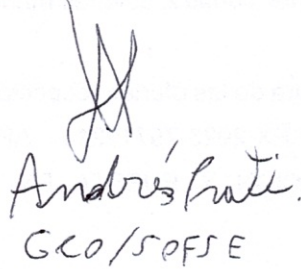 Andrés Prati.
GCO/SOFSE